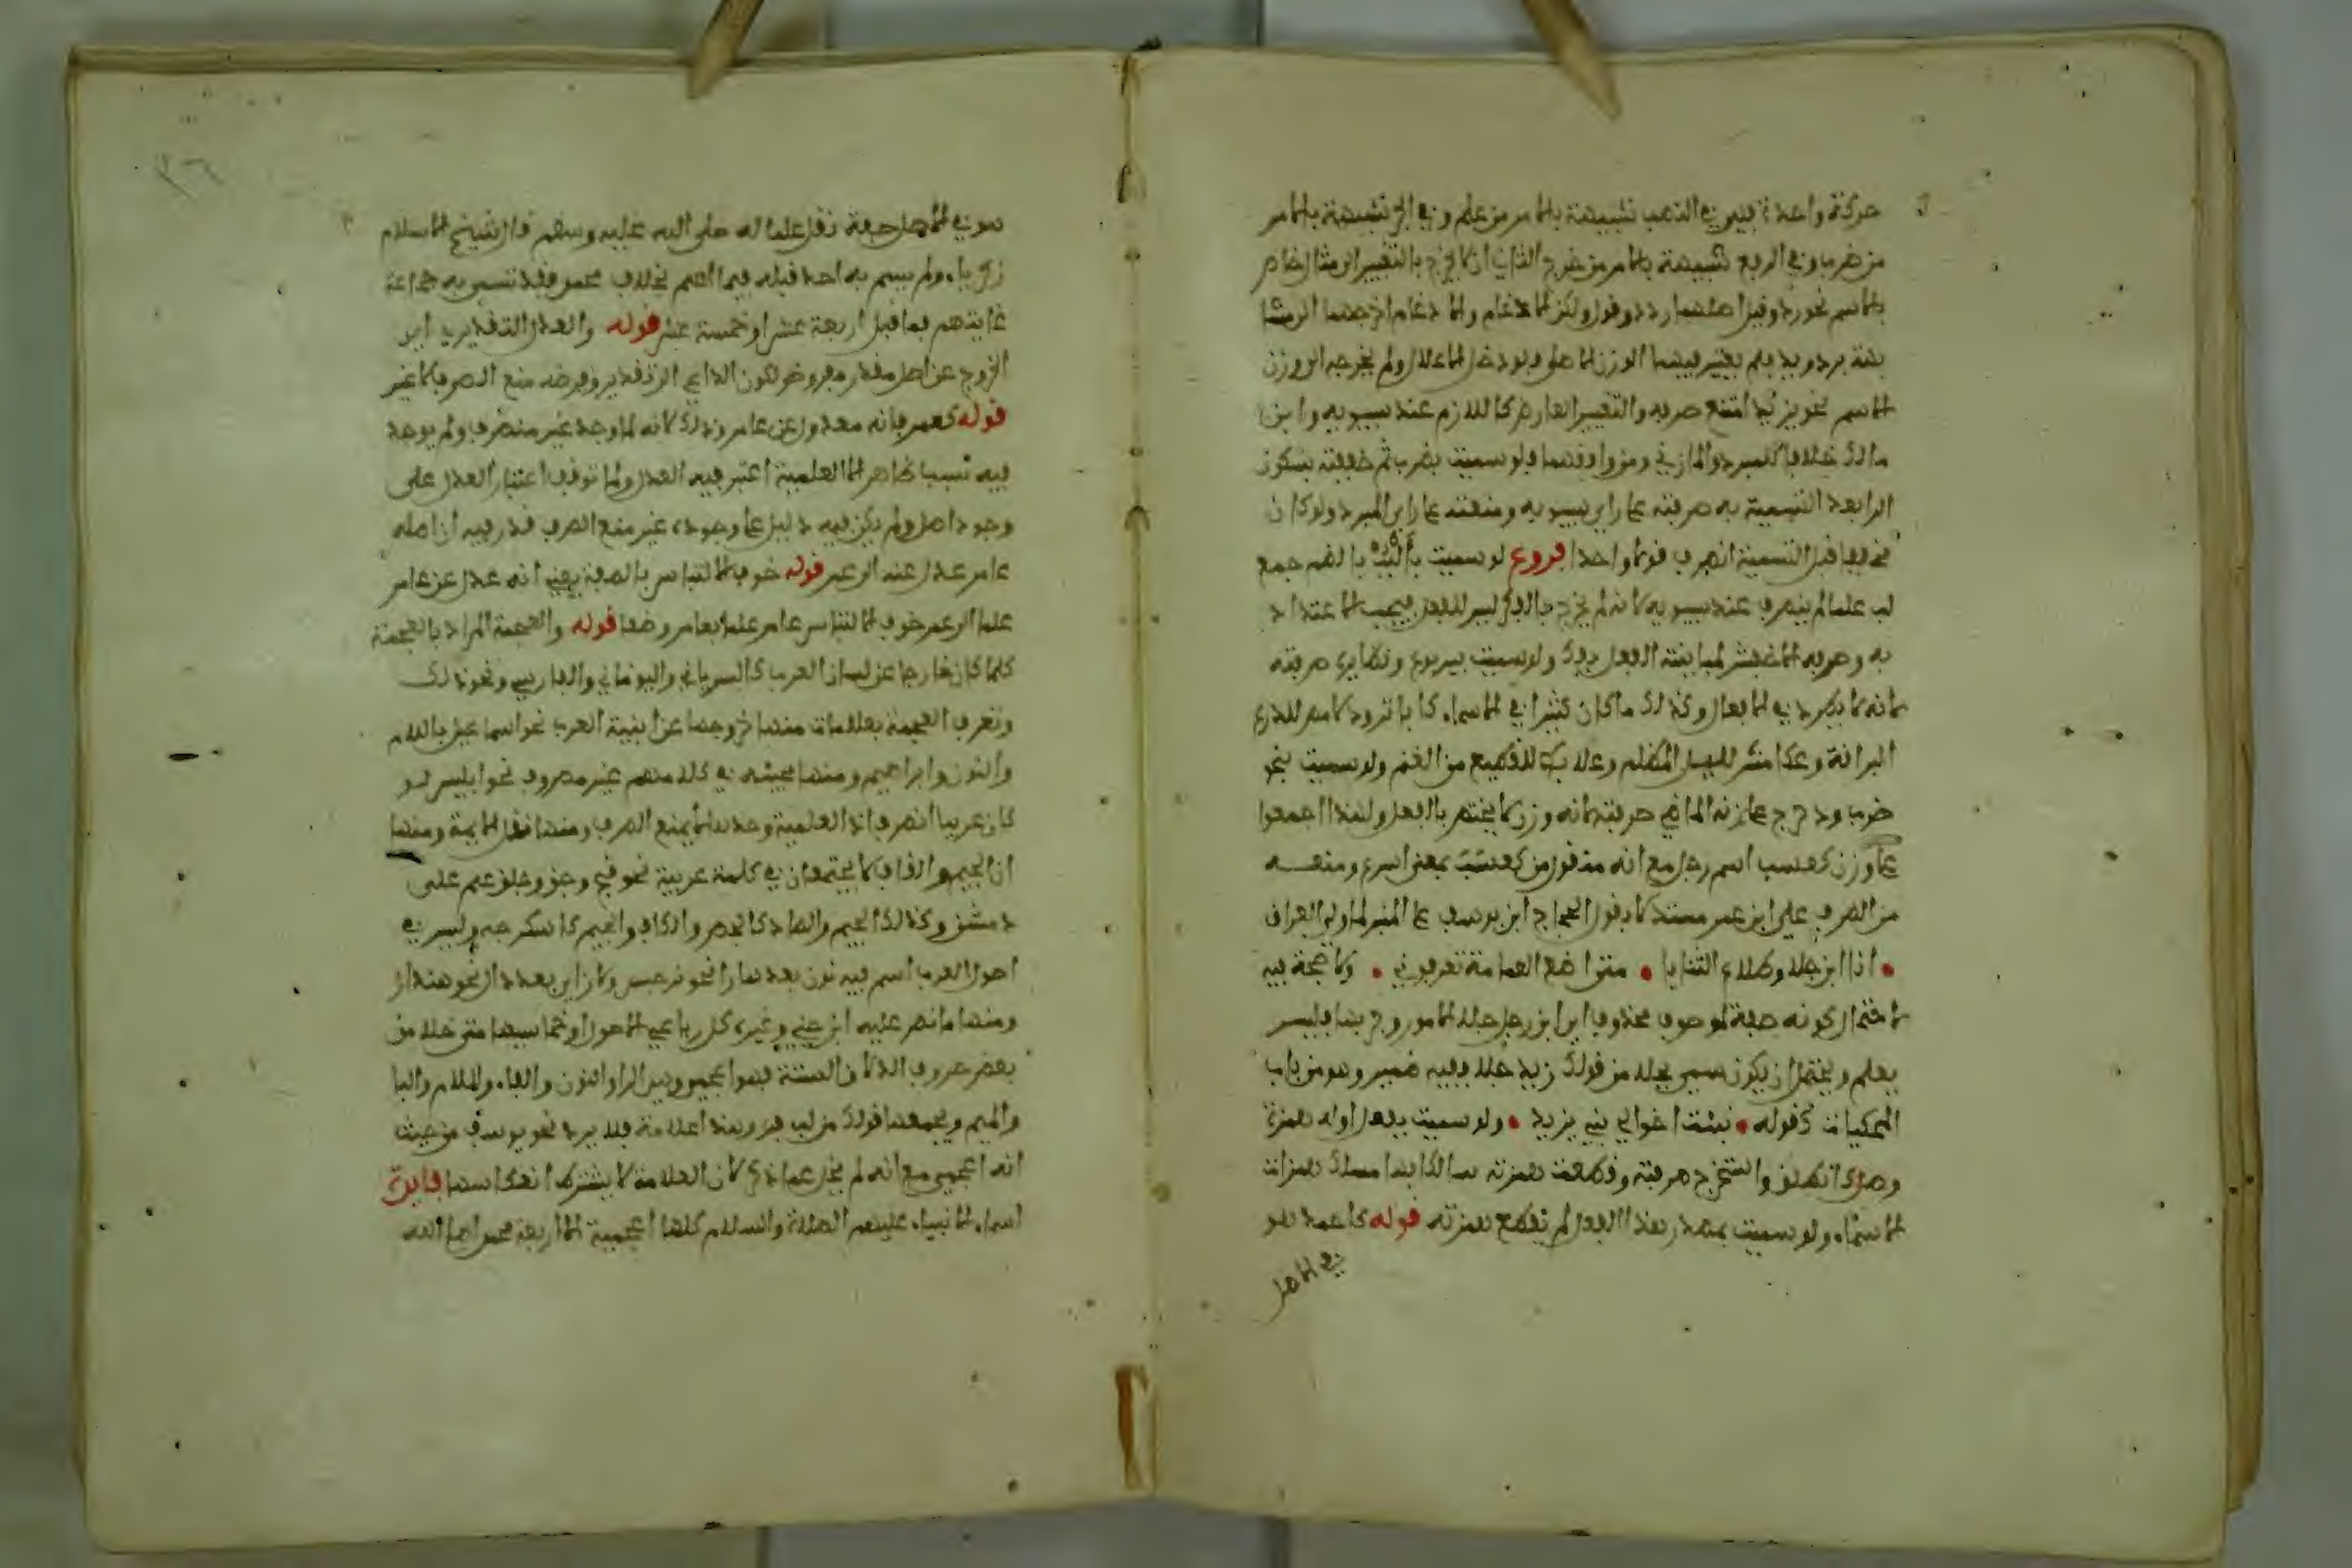 حركة واحدة فهي في النصب شبيهة بالامر من علم وفي الجر شبيهة بالامر
من ضرب وفي الرفع شبيهة بالامر من خرج الثاني ان لا يخرج بالتغيير الى مثال ظاهر
بالاسم نحو رد وقيل اصلهما ردد وقول ولكن الادغام والاعلال اخرجهما الى مشا
بهة برد وبيد فلم يعتبر فيهما الوزن الاصلي ولو دخل الاعلال ولم يخرجه الى وزن
الاسم نحو يزيد امتنع صرفه والتغيير العارض كاللازم عند سيبويه وابن
مالك خلافا للمبرد والمازني ومن وافقهما فلو سميت بضرب ثم خففته بسكون
الرا بعد التسمية به صرفته على راي سيبويه ومنعته على راي المبرد ولو كان
مخففا قبل التسمية انصرف قولا واحدا فروع لو سميت بألبب بالضم جمع
لب علما لم ينصرف عند سيبويه لانه لم يخرج بالفك ليس للفعل فيجب الاعتداد
به وصرفه الاخفش لمباينته الفعل بالفك ولو سميت بيربوع ونظايره صرفته
لانه لا يطرد في الافعال وكذلك ما كان كثيرا في الاسماء
ضرب ودحرج على زنه الماضي صرفته لانه وزن لا يختص بالفعل ولهذا اجمعوا
على وزن كعسب اسم رجل مع انه منقول من كعسب بمعنى اسرع ومنعه
من الصرف عيسى ابن عمر مستدلا بقول الحجاج ابن يوسف على المنبر لما ولي العراق
• انا ابن جلا وطلاع الثنايا • متى اضع العمامة تعرفوني • ولا حجة فيه
لاحتمال كونه صفة لموصوف محذوف اي انا ابن رجل جلا الامور وجربها فليس
بعلم ويحتمل ان يكون سمي بجلا من قولك زيد جلا ففيه ضمير وهو من باب
المحكيات كقوله • نبئت اخوالي بني يزيد • ولو سميت بفعل اوله همزة
وصل كانطلق واستخرج صرفته وقطعت همزته سالكا بها مسلك همزات
الاسماء ولو سميت بمصدر هذا الفعل لم تقطع همزته قوله كاحمد هو
في الاصل
هو في الاصل صفة نقل علما له صلى الله عليه وسلم قال شيخ الاسلام
زكريا ولم يسم به احد قبله فيما اعلم بخلاف محمد فقد تسمى به جماعة
غايتهم فما قيل اربعة عشر او خمسة عشر قوله والعدل التقديري اي
الخروج عن اصل مقدر مفروض لكون الداعي الى تقديره وفرضه منع الصرف لا غير
قوله كعمر فانه معدول عن عامر وذلك لانه لما وجد غير منصرف ولم يوجد
فيه سبب ظاهر الا العلمية اعتبر فيه العدل ولما توقف اعتبار العدل على
وجود اصل ولم يكن فيه دليل على وجوده غير منع الصرف قدر فيه ان اصله
عامر عدل عنه الى عمر قوله خوف الالتباس بالصفة يعني انه عدل عن عامر
علما الى عمر خوف الالتباس عامر علما بعامر وصفا قوله والعجمة المراد بالعجمة
كلما كان خارجا عن لسان العرب كالسرياني واليوناني والفارسي ونحو ذلك
وتعرف العجمة بعلامات منها خروجها عن ابنية العرب نحو اسماعيل باللام
والنون وابراهيم ومنها مجيئه في كلامهم غير مصروف نحو ابليس لو
كان عربيا انصرف اذ العلمية وحدها لا تمنع الصرف ومنها نقل الايمة ومنها
ان الجيم والقاف لا يجتمعان في كلمة عربية نحو
دمشق وكذلك الجيم والصاد كالجص والكاف والجيم كاسكرجه وليس في
اصول العرب اسم فيه نون بعدها را نحو نرجس ولا زاي بعد دال نحو هنداز
ومنها ما نص عليه ابن جني وغيره كل رباعي الاصول او خماسيها متى خلا من
بعض حروف الذلاقة الستة فهو اعجمي وهي الرا والنون والفا واللام والبا
والميم ويجمعها قولك من لب فر وهذه اعلامة فلا يرد نحو يوسف من حيث
انه اعجمي مع انه لم يخل عما ذكر لان العلامة لا يشترط انعكاسها فايدة
اسماء الانبياء عليهم الصلاة والسلام كلها اعجمية الا اربعة محمد صلى الله